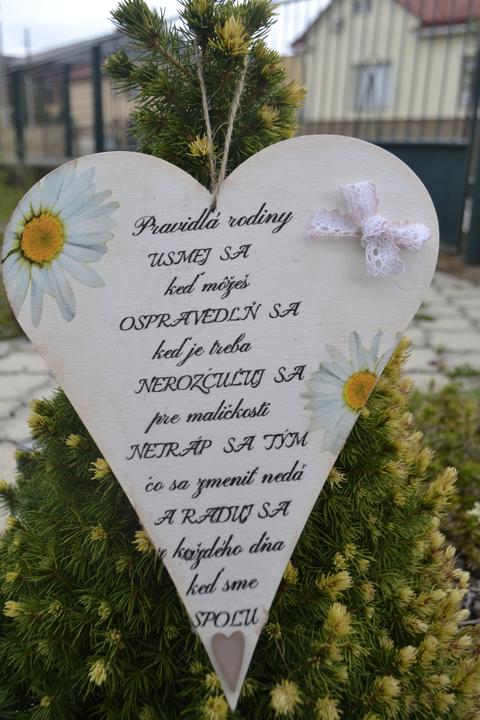 Pravidlá rodiny
USMEJ SA
keď môžeš
OSPRAVEDLŇ SA
keď je treba
NEROZČUĽUJ SA
pre maličkosti
NETRÁP SA TÝM
čo sa zmeniť nedá
A RADUJ SA
z každého dňa
keď sme
SPOLU